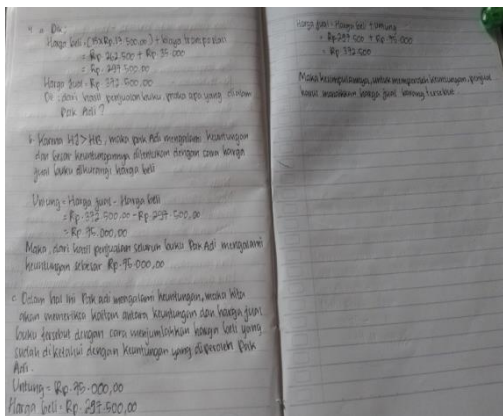 Dik :
Harga beli = (15 x Rp.17.500,00) + biaya transportasi
= Rp. 262.500 + Rp 35.000
= Rp. 297.500,00
Harga Jual = Rp 372.500,00
Dit : dari hasil penjualan buku, apa yang dialami
Pak Adi ?
b. Karena HJ > HB, maka pak Adi mengalami keuntungan
dan besar keuntungannya ditentukan dengan cara harga
jual buku dikurangi harga beli
Untung = Harga jual - Harga beli
= Rp. 372.500,00 - Rp. 297.500,00
= Rp 75.000,00
Maka, dari hasil penjualan seluruh buku Pak Adi mengalami
keuntungan sebesar Rp. 75.000,00
c. Dalam hal ini Pak adi mengalami keuntungan, maka kita
akan memeriksa kaitan antara keuntungan dan harga jual
buku tersebut dengan cara menjumlahkan harga beli yang
sudah diketahui dengan keuntungan yang diperoleh Pak
Adi.
Untung = Rp. 75.000,00
Harga beli = Rp. 297.500,00
Harga jual = Harga beli + untung
= Rp 297.500 + Rp 75.000
= Rp 372.500
Maka kesimpulannya, untuk memperoleh keuntungan, penjual
harus menaikkan harga jual barang tersebut.